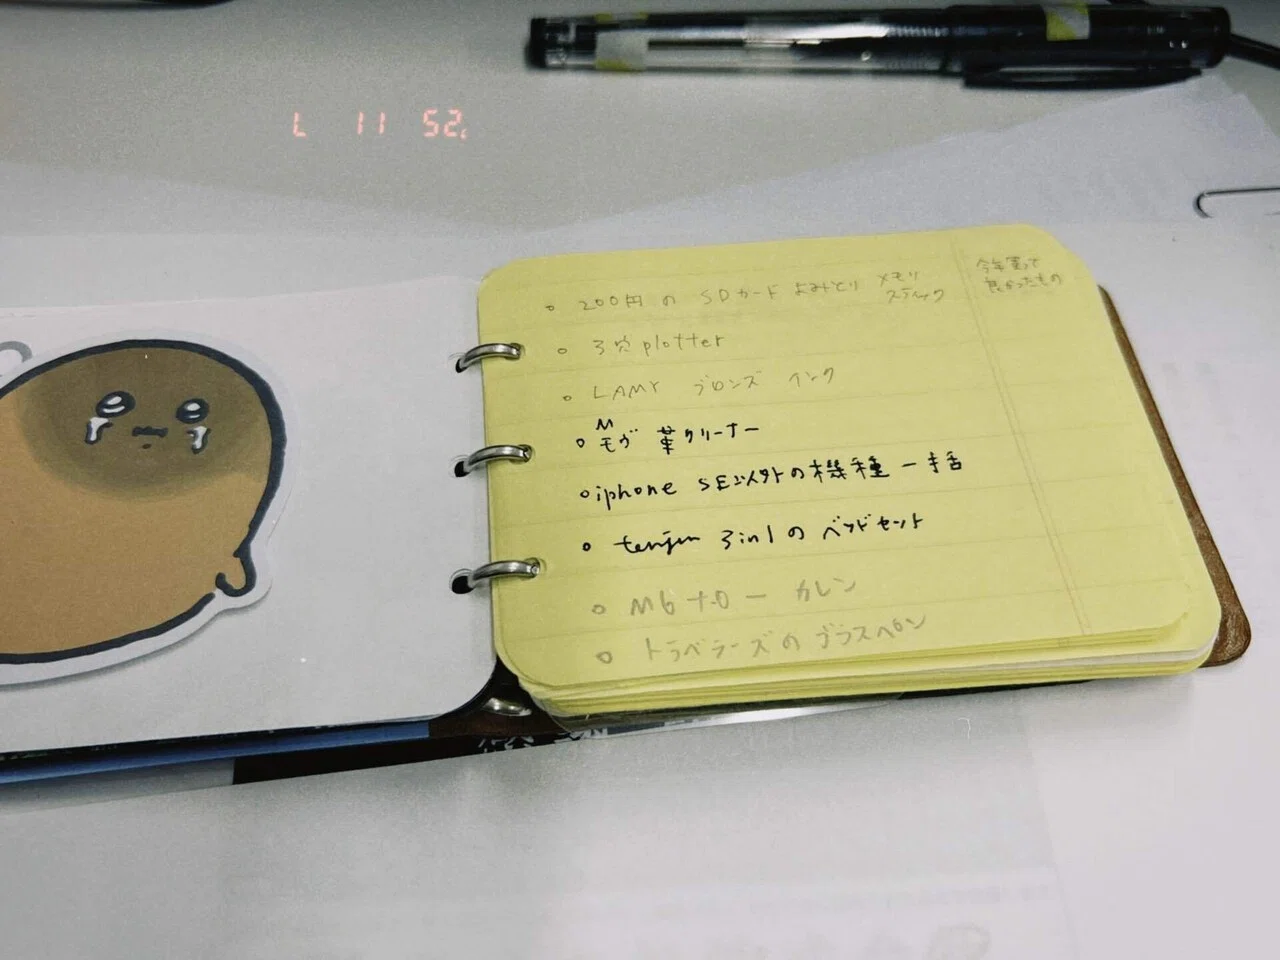 L 11 52
今年買って
良かったもの
200円の SDカード よみとり メモリ
スティック
3穴 plotter
LAMY ブロンズ インク
M
モヴ 葉クリーナー
iphone SE以外の機種 一括
tenjin 3in1の ベッドセット
M6 ナロー カレン
トラベラーズの ブラスペン